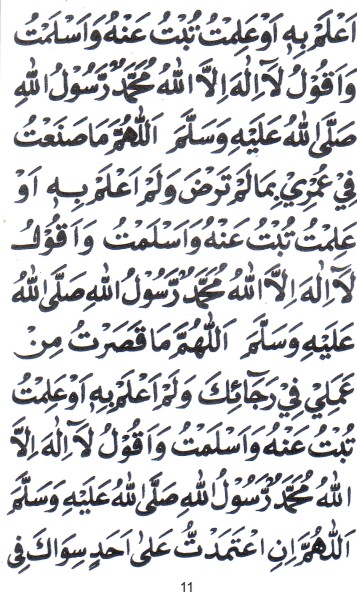 اَعْلَمْ بِهٖ اَوْ عَلِمْتُ تُبْتُ عَنْهُ وَاَسْلَمْتُ
وَاَقُوْلُ لَآ اِلٰهَ اِلَّا اللهُ مُحَمَّدٌ رَّسُوْلُ اللهِ
صَلَّى اللهُ عَلَيْهِ وَسَلَّمَ اَللّٰهُمَّ مَا صَنَعْتُ
فِيْ عُمْرِيْ بِمَا لَمْ تَرْضَ وَلَمْ اَعْلَمْ بِهٖ اَوْ
عَلِمْتُ تُبْتُ عَنْهُ وَاَسْلَمْتُ وَاَقُوْلُ
لَآ اِلٰهَ اِلَّا اللهُ مُحَمَّدٌ رَّسُوْلُ اللهِ صَلَّى اللهُ
عَلَيْهِ وَسَلَّمَ اَللّٰهُمَّ مَا قَصَرْتُ مِنْ
عَمَلِيْ فِيْ رَجَائِكَ وَلَمْ اَعْلَمْ بِهٖ اَوْ عَلِمْتُ
تُبْتُ عَنْهُ وَاَسْلَمْتُ وَاَقُوْلُ لَآ اِلٰهَ اِلَّا
اللهُ مُحَمَّدٌ رَّسُوْلُ اللهِ صَلَّى اللهُ عَلَيْهِ وَسَلَّمَ
اَللّٰهُمَّ اِنِ اعْتَمَدْتُّ عَلٰى اَحَدٍ سِوَاكَ فِى
11